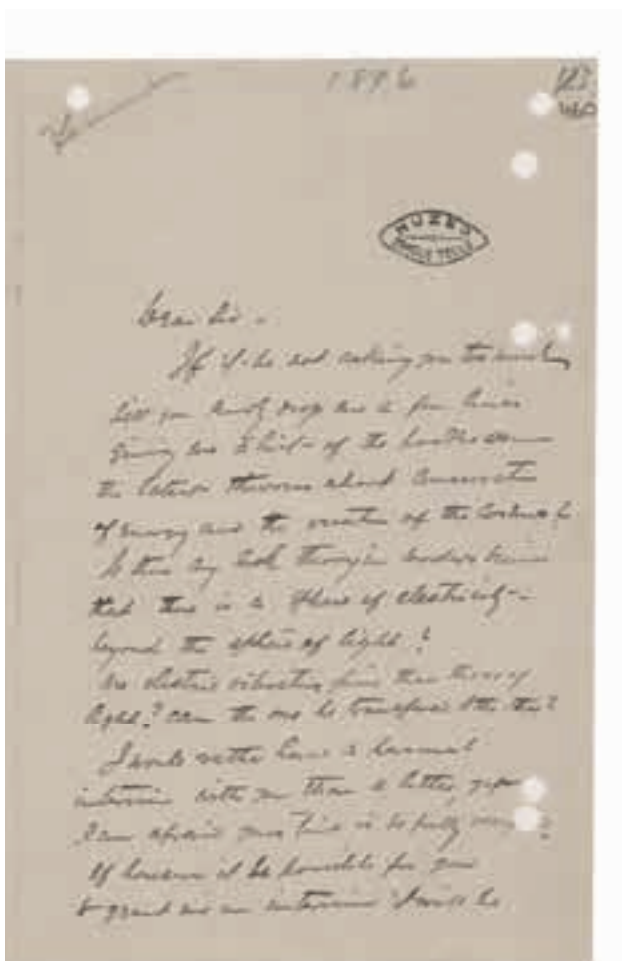 1896
MUZEJ
NIKOLE TESLE
Dear Sir -
If it be not asking you too much
will you kindly drop me a few lines
giving me a list of the books on
the latest theories about conservation
of energy and the creation of the cosmos &
Is there any such theory in modern
that there is a sphere of electricity
beyond the sphere of light?
Are electric vibrations finer than those of
light? Can the one be transferred to the other?
I would rather have a personal
interview with you than a letter,
I am afraid your time is so fully
If however it be possible for you
to grant me an interview I will be